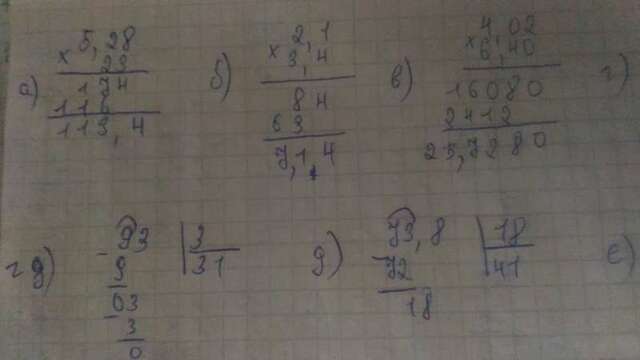 а) × 5,28
23
1 1 4
113,4
б) × 2,1
3,4
84
63
7,1,4
в) × 4,02
6,40
16080
2412
25,7280
г)
г д) - 93 | 3
9 | 31
03
3
0
д) - 73,8 | 18
72 | 41
18
е)